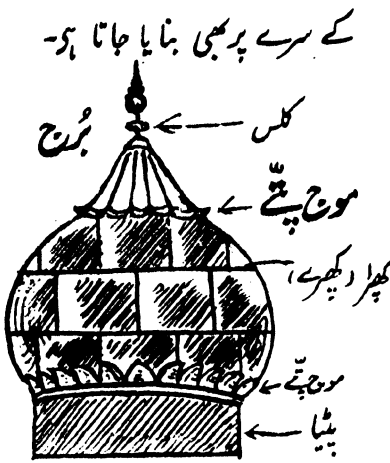 کے سرے پر بھی بنایا جاتا ہے۔
کلس
بُرج
موج پتّے
کھپرا (کھپرے)
موج پتّے
پٹیا